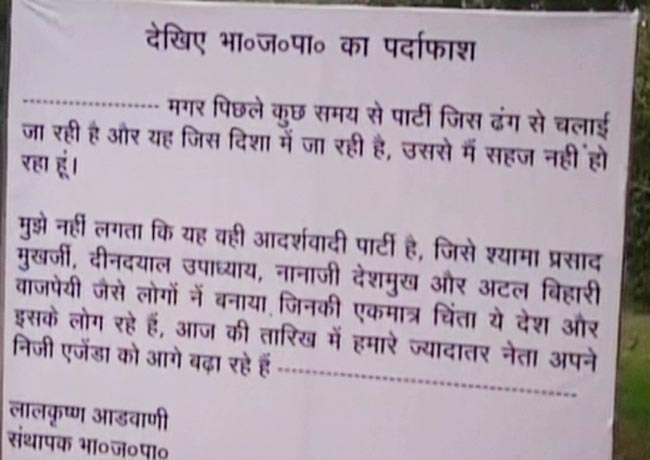 देखिए भा०ज०पा० का पर्दाफाश
-------------------- मगर पिछले कुछ समय से पार्टी जिस ढंग से चलाई
जा रही है और यह जिस दिशा में जा रही है, उससे मैं सहज नही हो
रहा हूं।
मुझे नहीं लगता कि यह वही आदर्शवादी पार्टी है, जिसे श्यामा प्रसाद
मुखर्जी, दीनदयाल उपाध्याय, नानाजी देशमुख और अटल बिहारी
वाजपेयी जैसे लोगों नें बनाया, जिनकी एकमात्र चिंता ये देश और
इसके लोग रहे हैं, आज की तारिख में हमारे ज्यादातर नेता अपने
निजी एजेंडा को आगे बढ़ा रहे हैं ----------------------------------------
लालकृष्ण आडवाणी
संथापक भा०ज०पा०